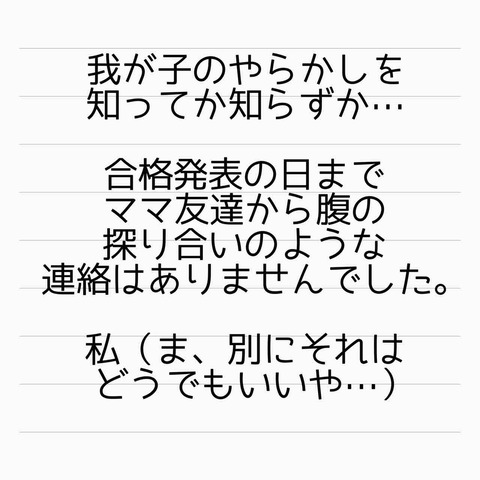 我が子のやらかしを
知ってか知らずか…
合格発表の日まで
ママ友達から腹の
探り合いのような
連絡はありませんでした。
私（ま、別にそれは
どうでもいいや…）